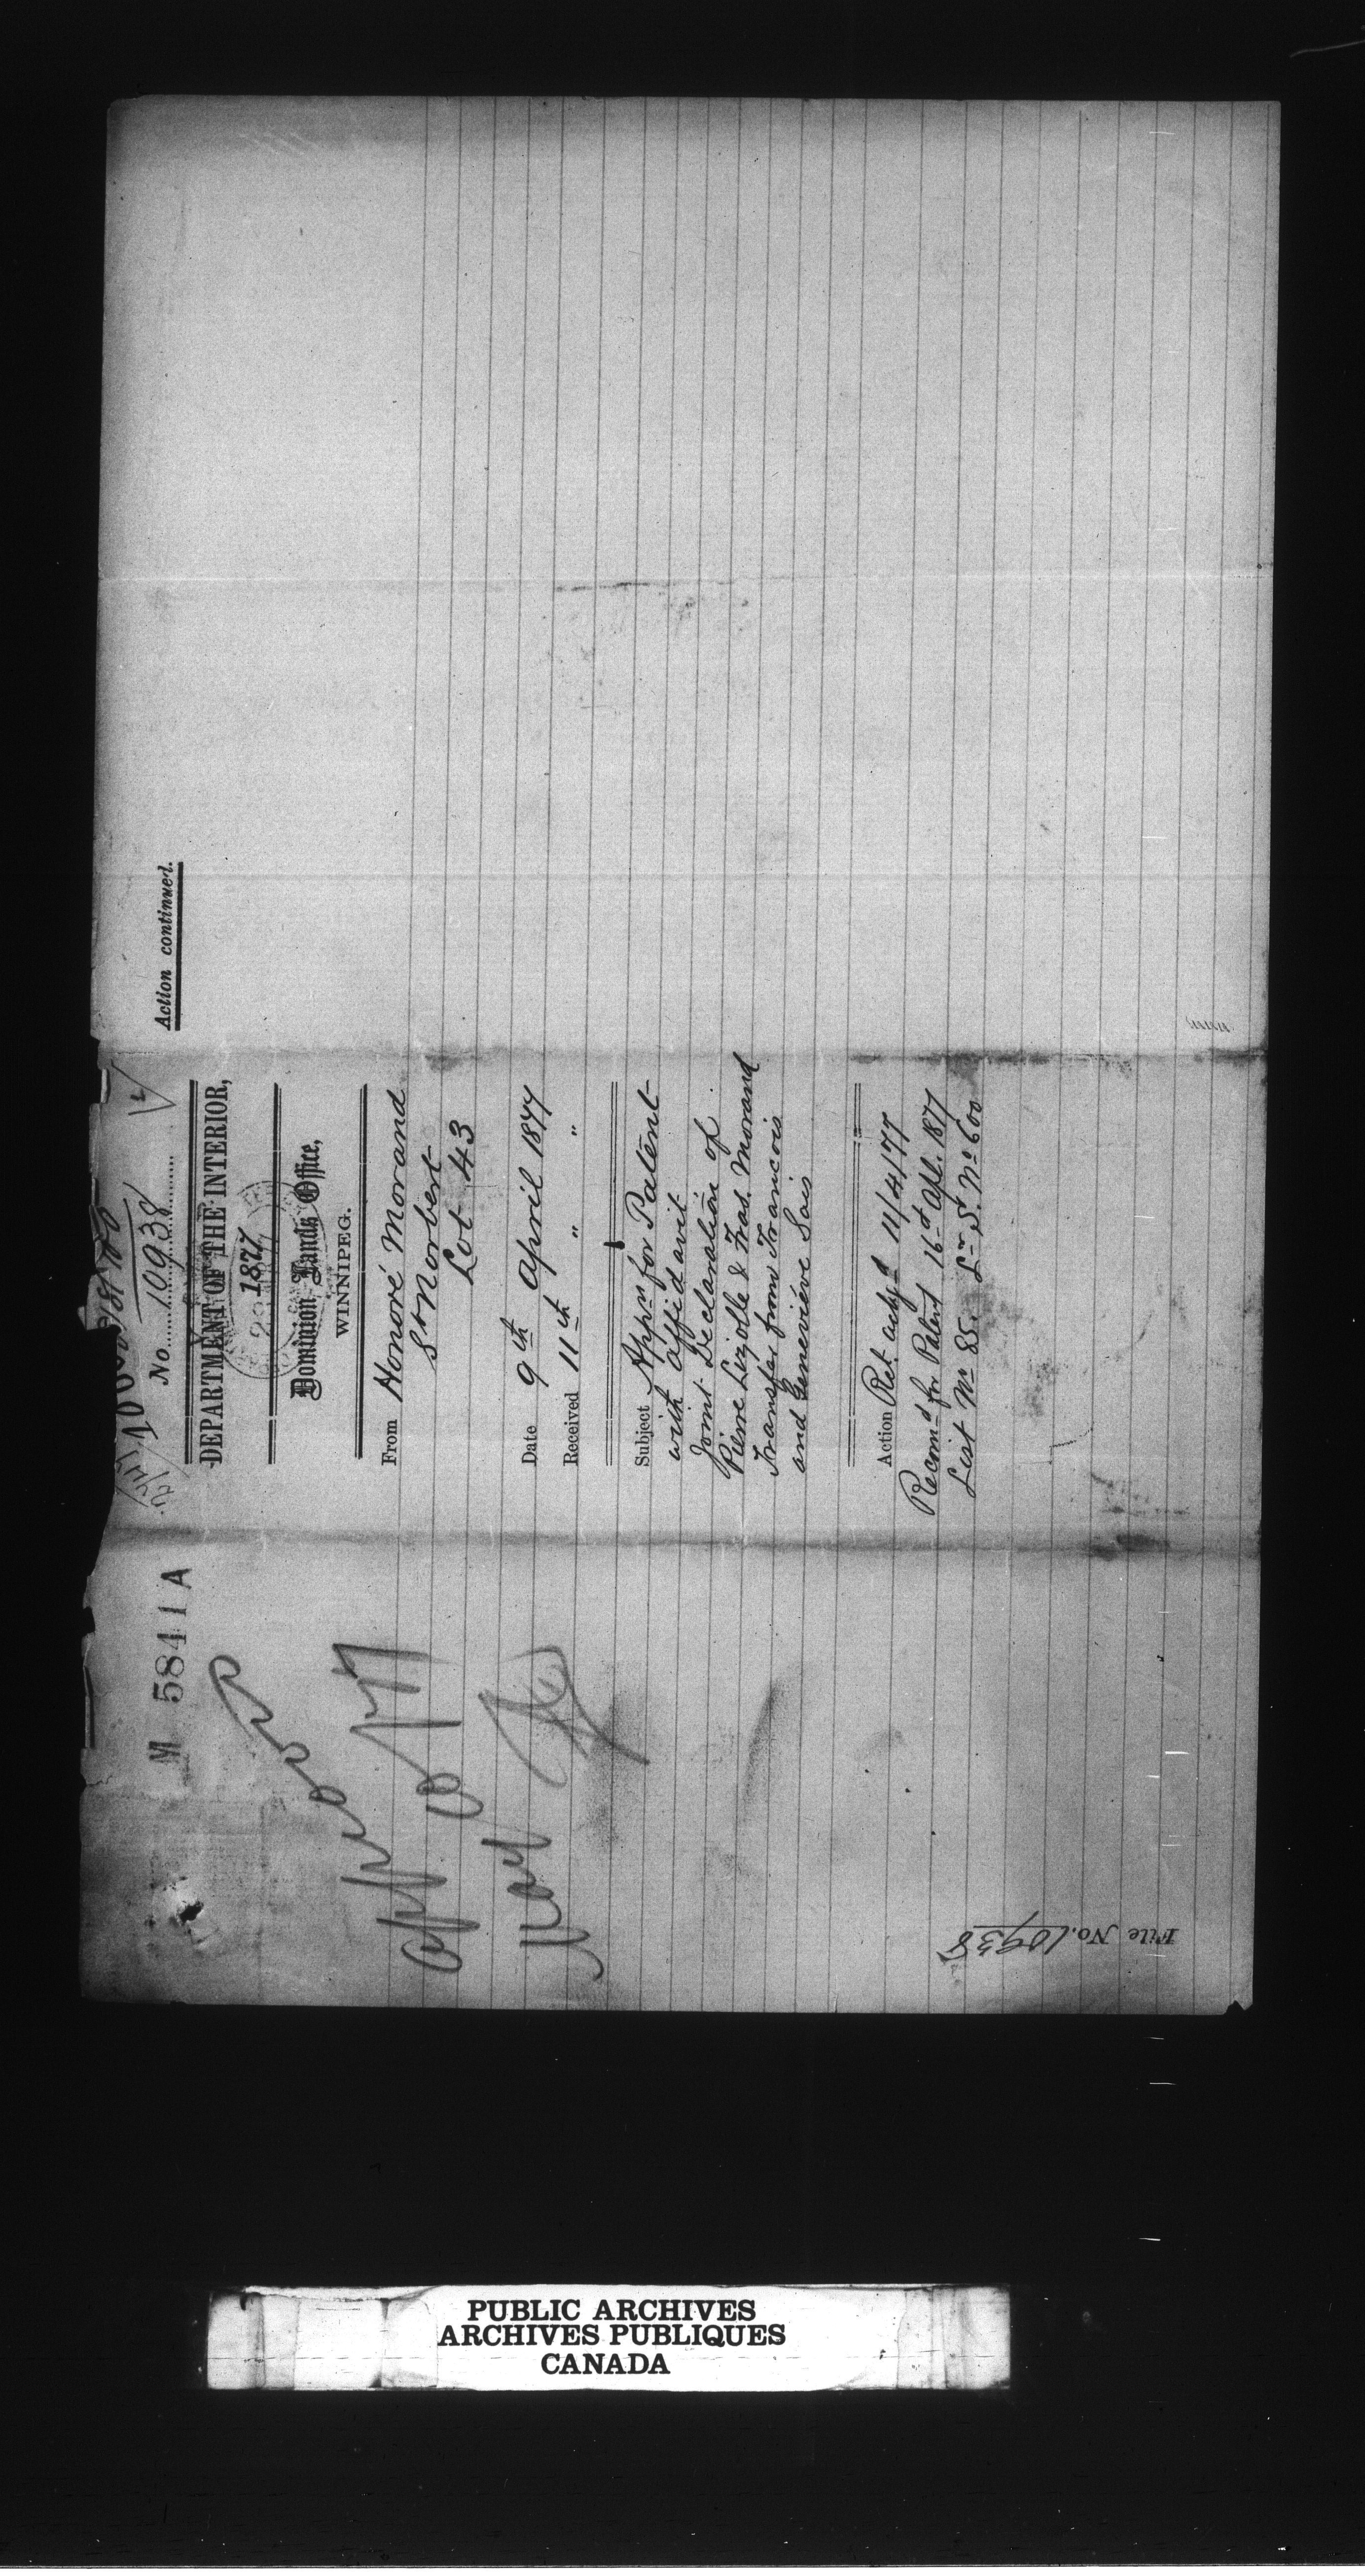 M 5841 A
approved
No. 10938
DEPARTMENT OF THE INTERIOR,
1877
Dominion Lands Office,
WINNIPEG.
From Honoré Morand
St Norbert
Lot 43
Date 9th April 1877
Received 11th " "
Subject Appn for Patent
with affidavit
Joint Declaration of
Pierre Lizotte & Fras. Morand
Transfer from Francois
and Geneviéve Sais
Action Rect. ackgd 11/4/77
Recomd for Patent 16d Apl. 1877
List No 85. Lr S. No 600
Action continued.
File No. 10938
PUBLIC ARCHIVES
ARCHIVES PUBLIQUES
CANADA